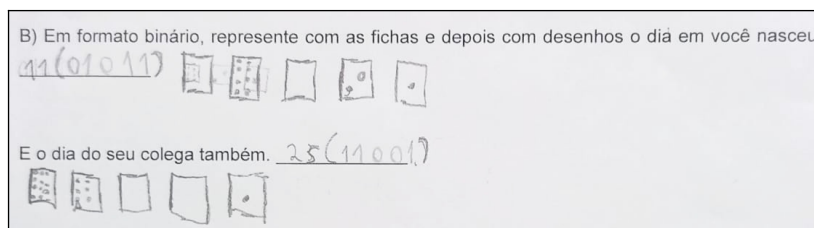 B) Em formato binário, represente com as fichas e depois com desenhos o dia em você nasceu
11(01011)
E o dia do seu colega também. 25(11001)